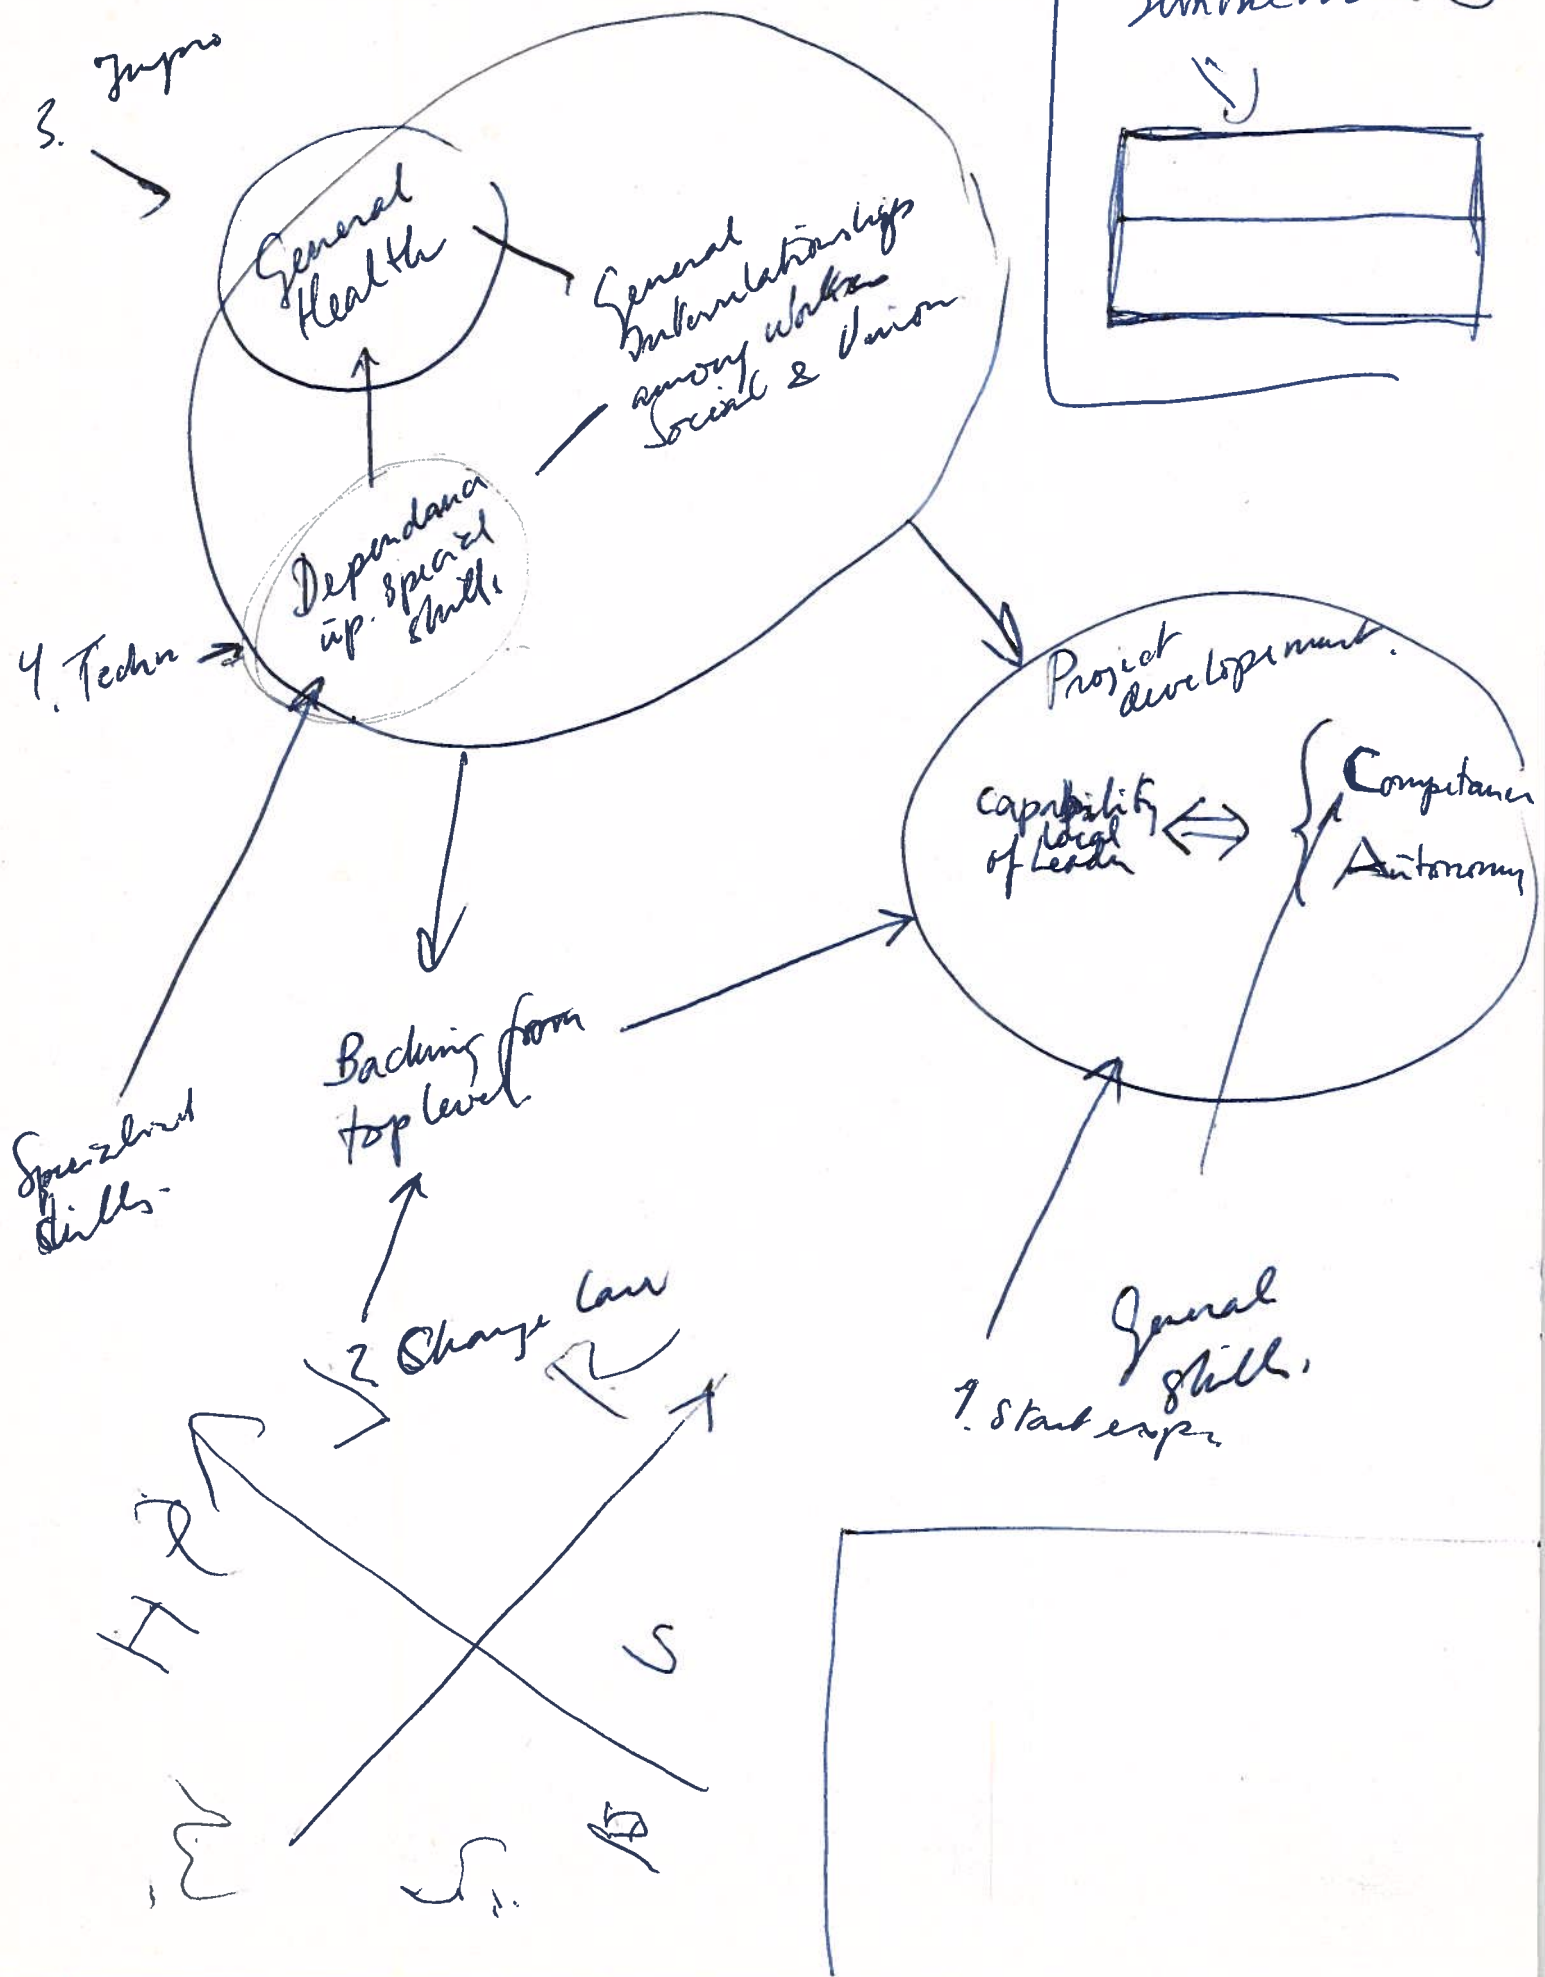 3.
General
Health
General
Interrelationships
among workers
Social & Union
Dependana
up. special
skills
4. Techn
Project
developement.
capability
of Local
Leader
Competance
Autonomy
Backing from
top level
Specialized
skills-
2 Change Law
General
skills.
1. Start exp.
H
S